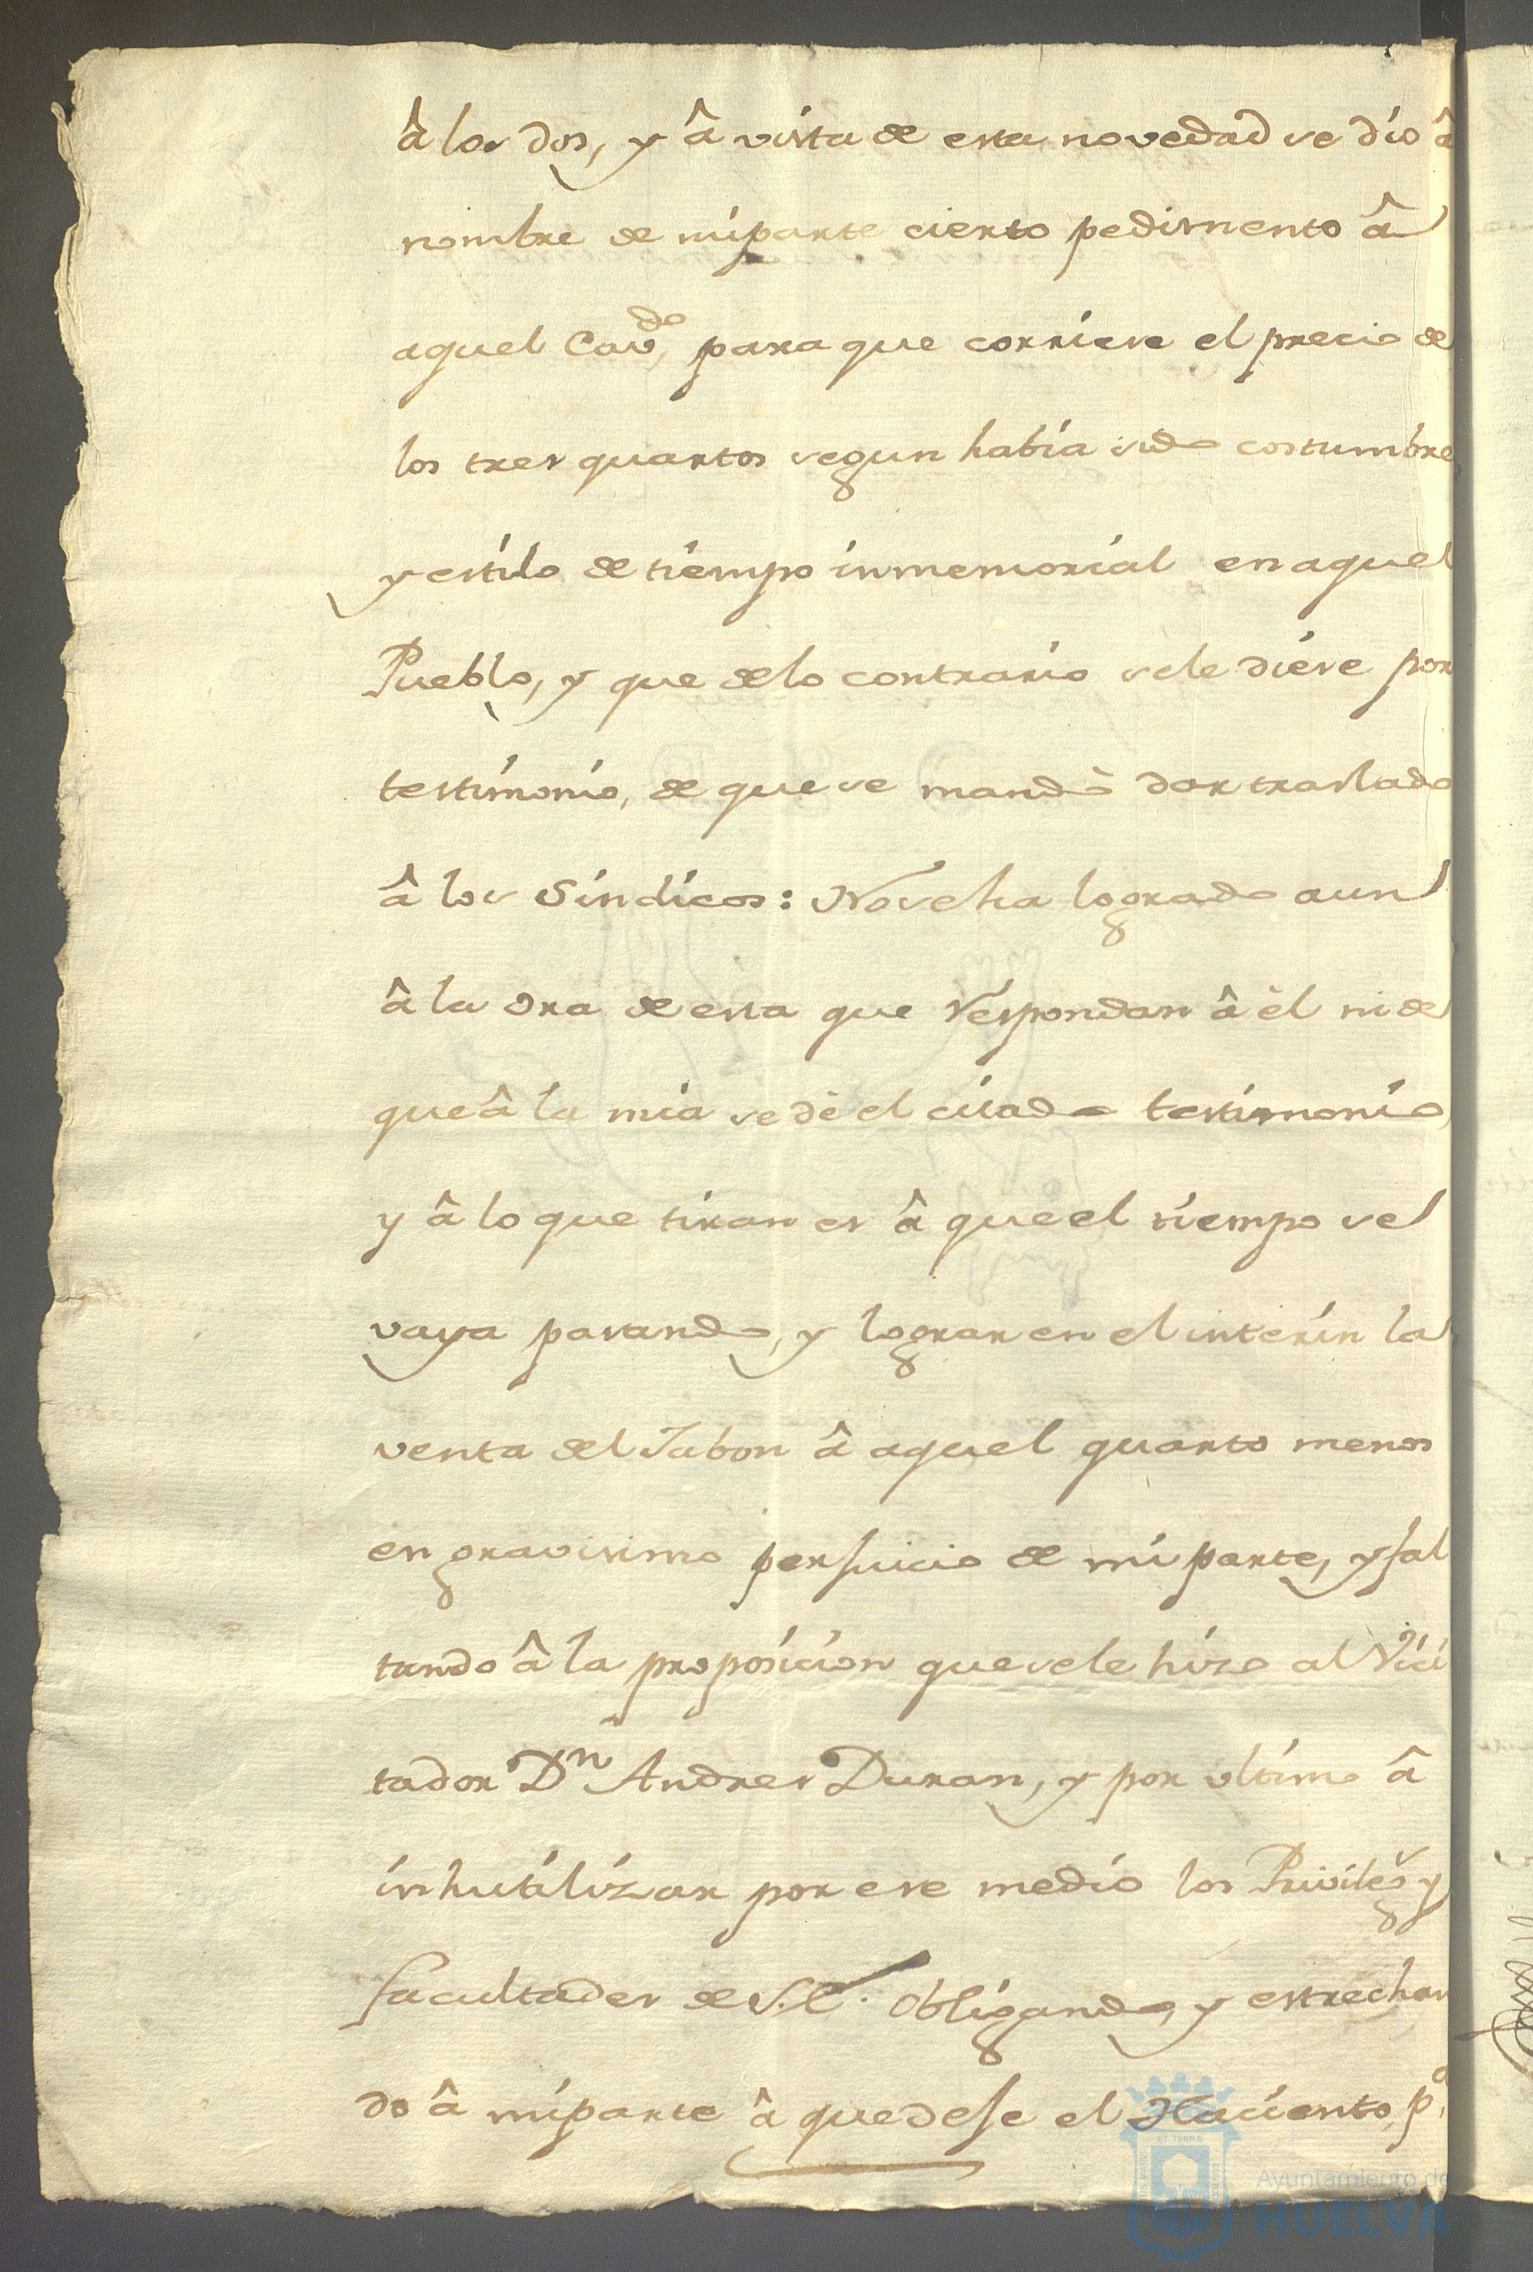 â los dos, y â vista de esta novedad se dio â
nombre de mi parte cierto pedimento â
aquel Cavdo, para que corriese el precio de
los tres quartos segun habia sido costumbre
y estilo de tiempo inmemorial en aquel
Pueblo, y que de lo contrario se le diese por
testimonio, de que se mandò dar traslado
â los Sindicos: No se ha logrado aun
â la ora de esta que respondan â èl ni de
que â la mia se dè el citado testimonio,
y â lo que tiran es â que el tiempo se
vaya pasando, y lograr en el interin la
venta del Jabon â aquel quarto menos
en gravisimo perjuicio de mi parte, y fal
tando â la proposicion que se le hizo al Vici
tador Dn Andres Duran, y por ultimo â
inhutilizar por ese medio los Privilegs y
facultades de S.E. obligando, y estrechan
do â mi parte â que deje el Hacimento, pa.
Ayuntamiento de
HUELVA